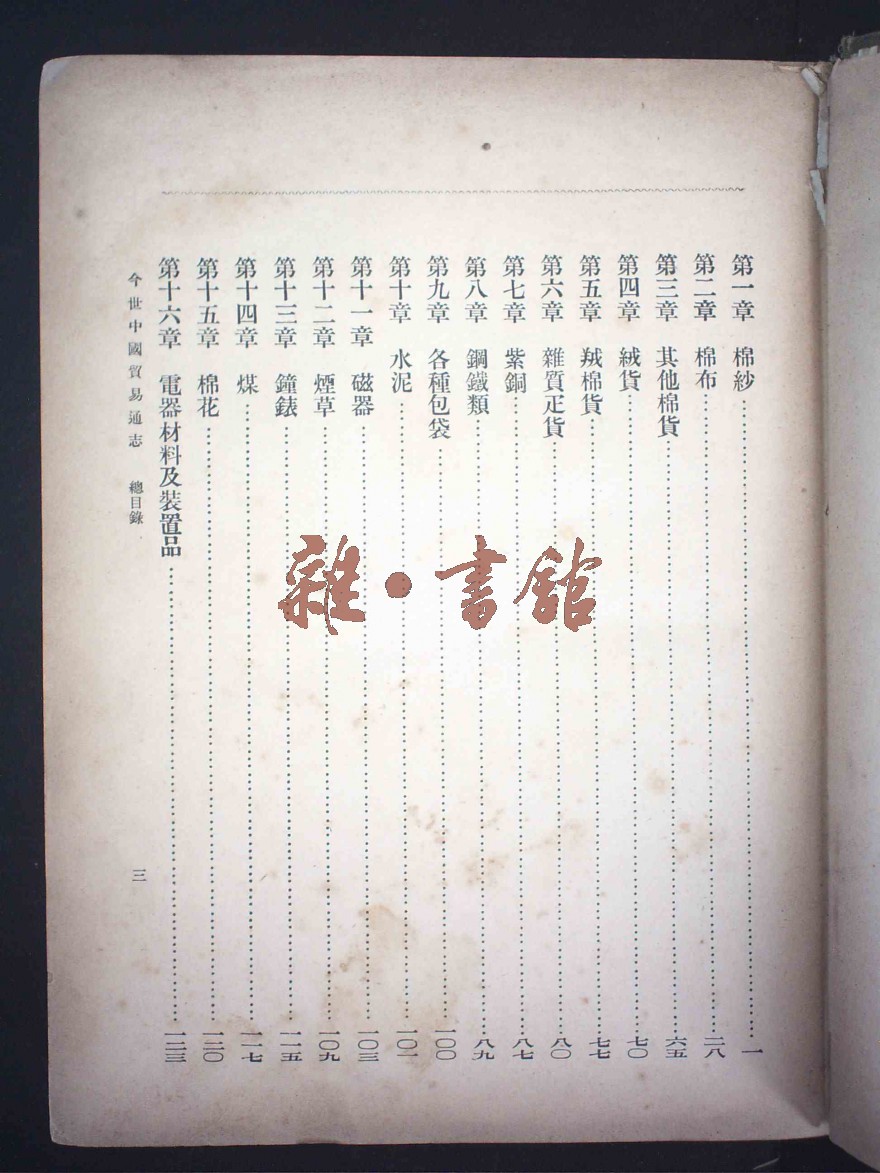 第一章 棉紗……一
第二章 棉布……二八
第三章 其他棉貨……六五
第四章 絨貨……七〇
第五章 羢棉貨……七七
第六章 雜質疋貨……八〇
第七章 紫銅……八七
第八章 鋼鐵類……八九
第九章 各種包袋……一〇〇
第十章 水泥……一〇一
第十一章 磁器……一〇三
第十二章 煙草……一〇九
第十三章 鐘錶……一一五
第十四章 煤……一一七
第十五章 棉花……一二〇
第十六章 電器材料及裝置品……一二三
今世中國貿易通志 總目錄 三
雜·書館